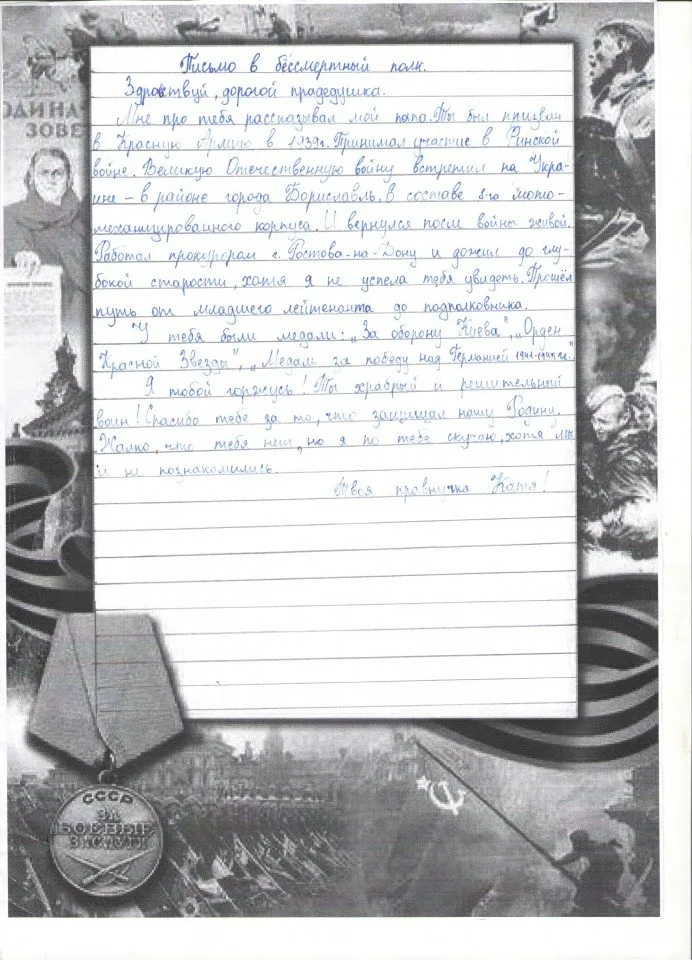 ОДИНА
ЗОВЕ
Письмо в бессмертный полк.
Здравствуй, дорогой прадедушка.
Мне про тебя рассказывал мой папа. Ты был призван
в Красную Армию в 1939г. Принимал участие в Финской
войне. Великую Отечественную войну встретил на Укра-
ине – в районе города Бориславль, в составе 8-го мото-
механизированного корпуса. И вернулся после войны живой.
Работал прокурорам г. Ростова-на-Дону и дожил до глу-
бокой старости, хотя я не успела тебя увидеть. Прошёл
путь от младшего лейтенанта до подполковника.
У тебя были медали: „За оборону Киева", „Орден
Красной Звезды", „Медаль за победу над Германией 1941-1945 гг."
Я тобой горжусь! Ты храбрый и решительный
воин! Спасибо тебе за то, что защищал нашу Родину.
Жалко, что тебя нет, но я по тебе скучаю, хотя мы
и не познакомились.
Твоя правнучка Катя!
СССР
ЗА
БОЕВЫЕ
ЗАСЛУГИ